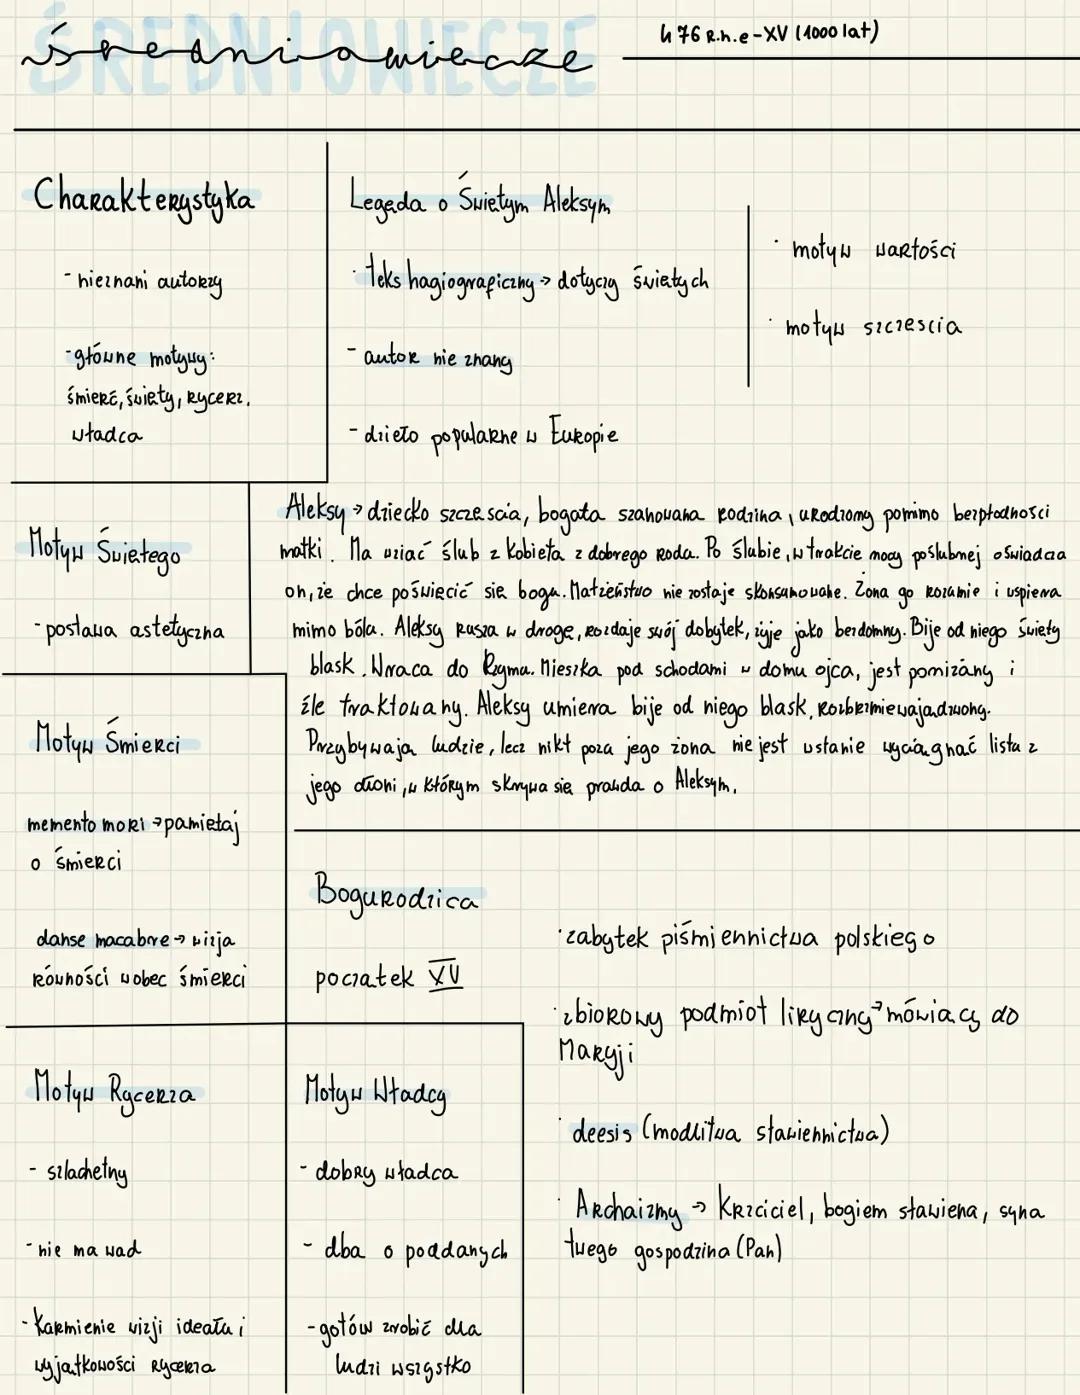 ŚREDNIOWIECZE
średniowiecze
476 R.n.e-XV (1000 lat)
Charakterystyka
- nieznani autorzy
- główne motywy:
śmierć, święty, rycerz,
władca
Legęda o Świętym Aleksym
· teks hagiograficzny → dotyczy świętych
- autor nie znany
- dzieło popularne w Europie
· motyw wartości
· motyw szczescia
Motyw Świętego
- postawa astetyczna
Aleksy → dziecko szczescia, bogata szanowana rodzina, urodzony pomimo bezpłodności
matki. Ma wziąć ślub z kobietą z dobrego rodu. Po ślubie, w trakcie nocy poślubnej oświadcza
on, że chce poświęcić się bogu. Małżeństwo nie zostaje skonsumowane. Żona go rozumie i wspiera
mimo bólu. Aleksy rusza w drogę, rozdaje swój dobytek, żyje jako berdomny. Bije od niego święty
blask. Wraca do Rzymu. Mieszka pod schodami w domu ojca, jest pomiżany i
źle traktowany. Aleksy umiera bije od niego blask, rozbrzmiewają dzwony.
Przybywają ludzie, lecz nikt poza jego żoną nie jest wstanie wyciągnąć listu z
jego dłoni, w którym skrywa się prawda o Aleksym.
Motyw Śmierci
memento mori → pamiętaj
o śmierci
danse macabre → wizja
równości wobec śmierci
Bogurodzica
początek XV
· zabytek piśmiennictwa polskiego
· zbiorowy podmiot liryczny → mówiący do
Maryji
· deesis (modlitwa stawiennictwa)
· Archaizmy → Krzciciel, bogiem sławiena, syna
twego gospodzina (Pan)
Motyw Rycerza
- szlachetny
- nie ma wad
- Karmienie wizji ideału i
wyjątkowości rycerza
Motyw Władcy
- dobry władca
- dba o poddanych
- gotów zrobić dla
ludzi wszystko